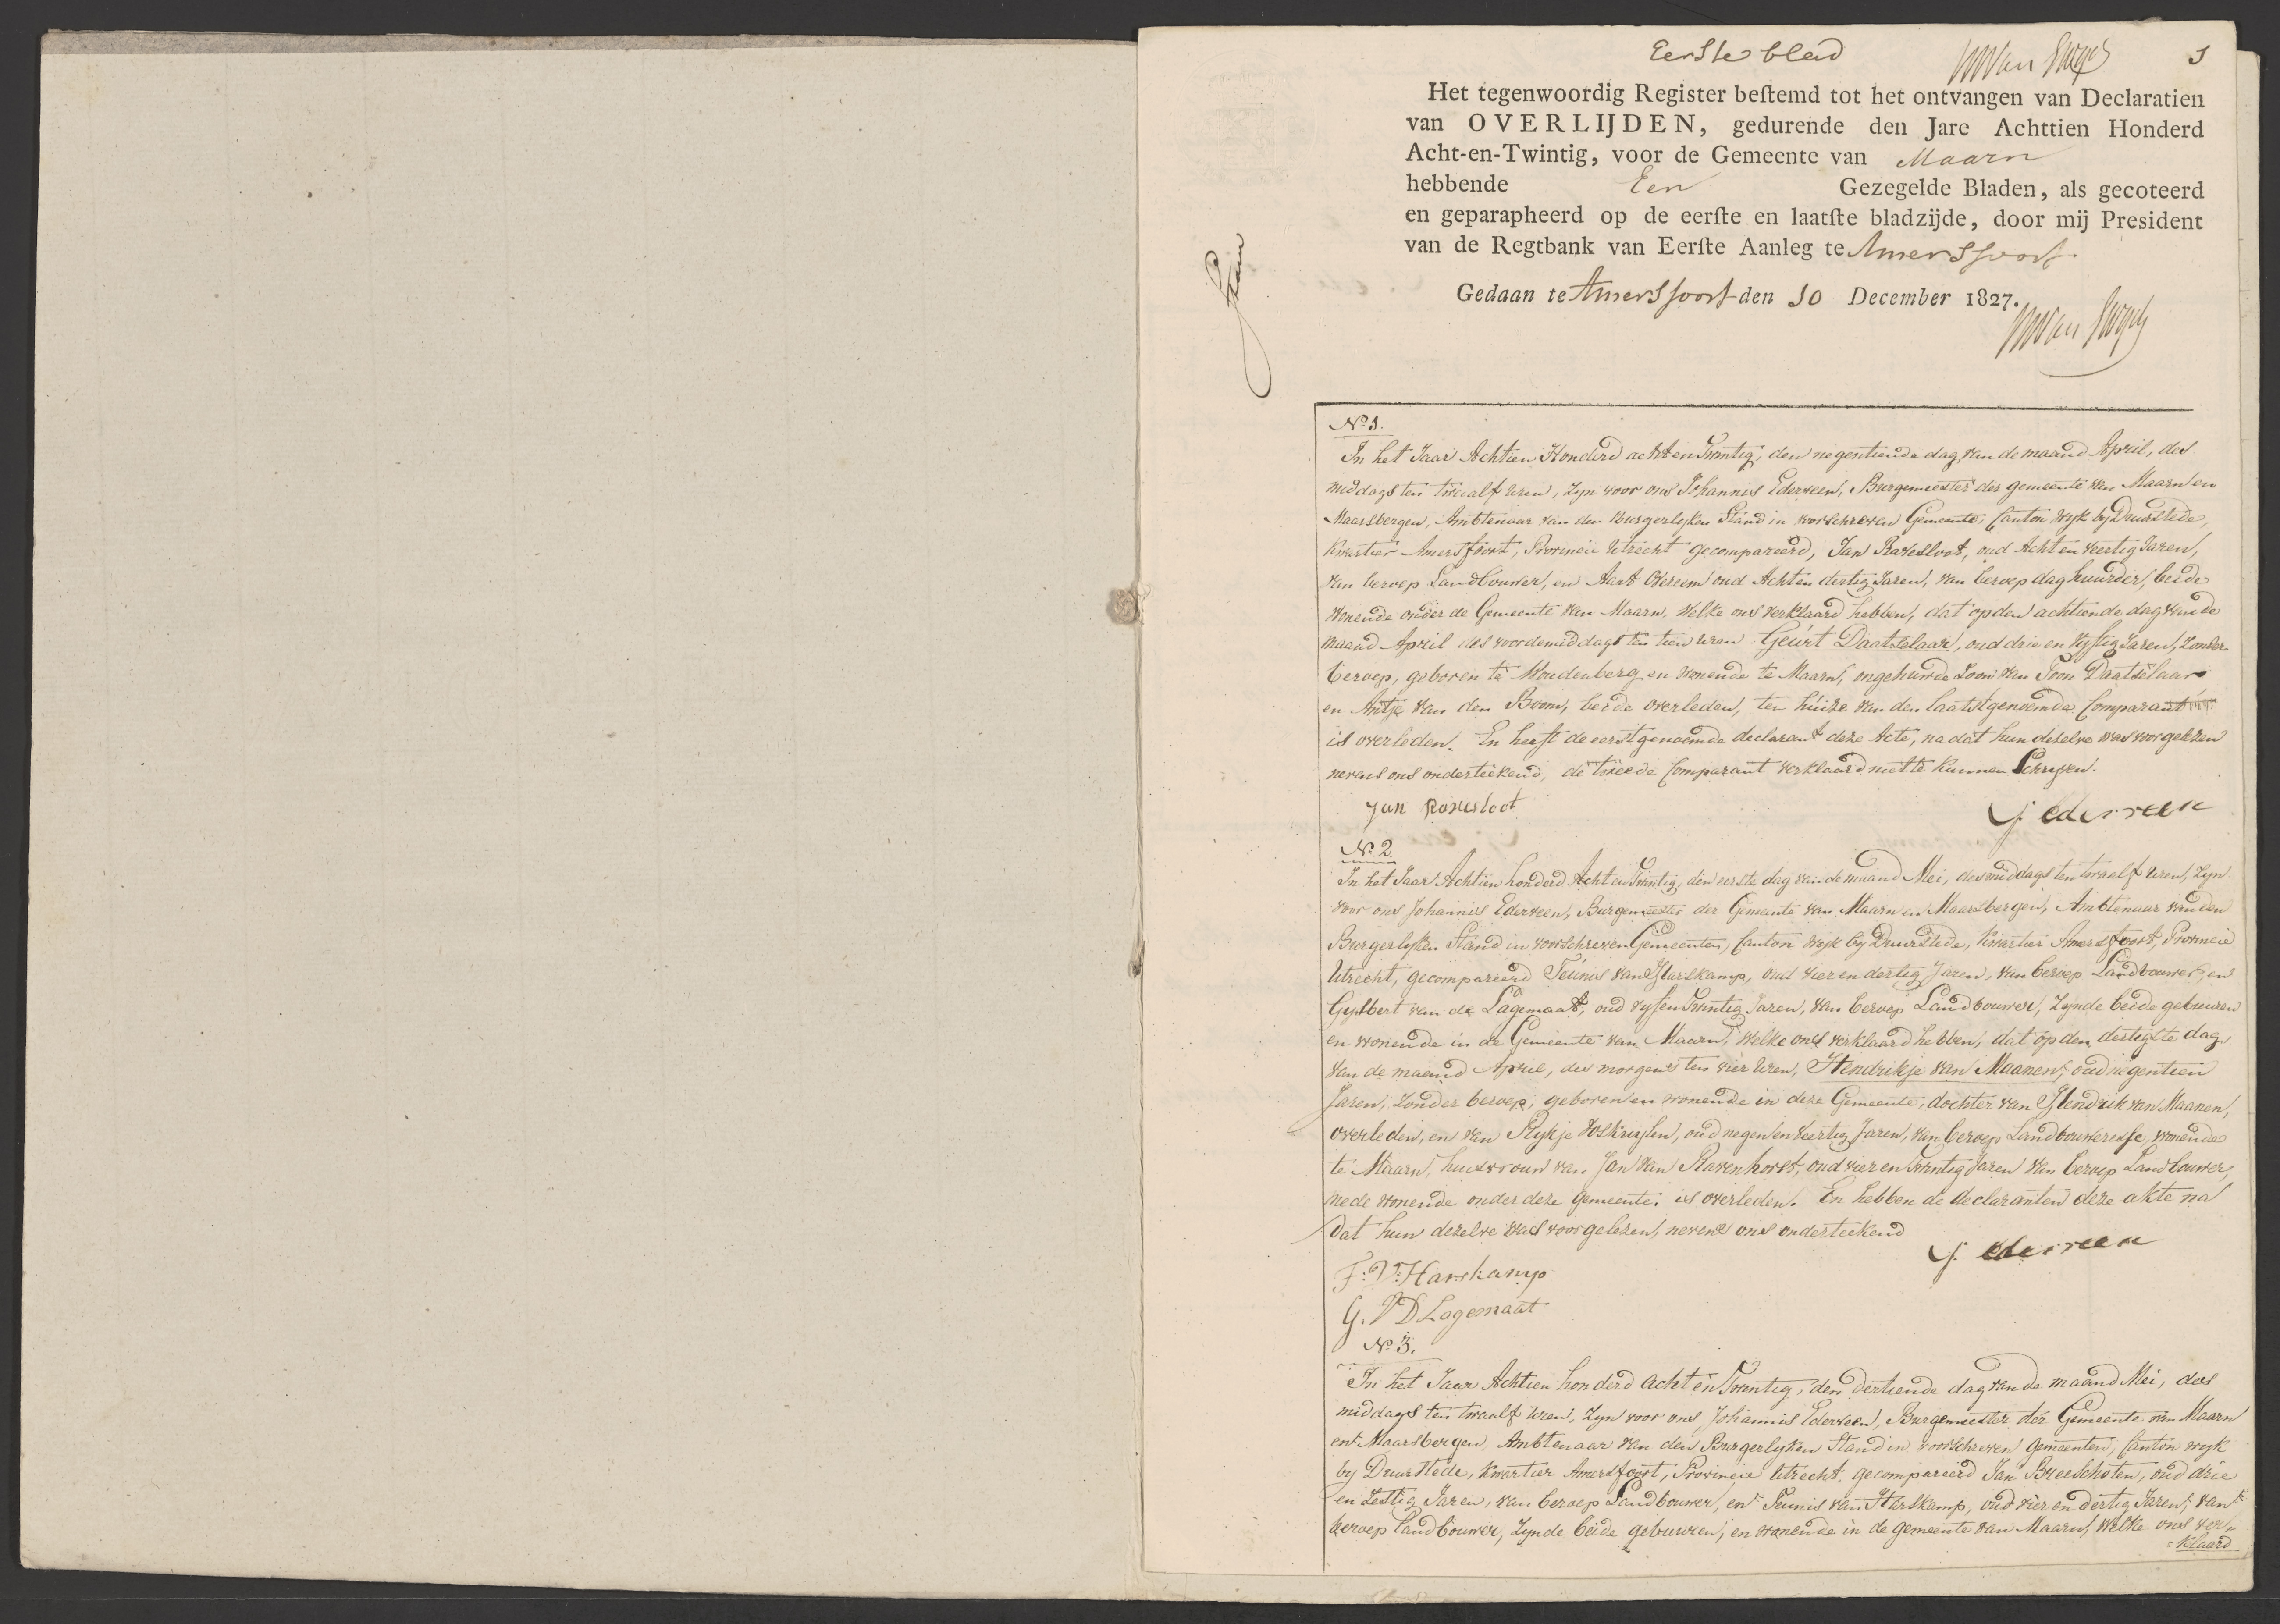 Eerste blad
1
Het tegenwoordig Register beſtemd tot het ontvangen van Declaratien
van OVERLIJDEN, gedurende den Jare Achttien Honderd
Acht-en-Twintig, voor de Gemeente van Maarn
hebbende Een Gezegelde Bladen, als gecoteerd
en geparapheerd op de eerſte en laatſte bladzijde, door mij President
van de Regtbank van Eerſte Aanleg te Amersfoort.
Gedaan te Amersfoort den 10 December 1827.
No 1.
In het Jaar Achtien Honderd acht en Twintig, den negentiende dag van de maand April, des
middags ten twaalf uren, zyn voor ons Johannis Ederveen, Burgemeester der gemeente van Maarn en
Maarsbergen, Ambtenaar van den Burgerlyken Stand in voorschreven Gemeente, Canton Wyk by Duurstede,
Kwartier Amersfoort, Provincie Utrecht gecompareerd, Jan Ravesloot, oud Acht en veertig Jaren,
van beroep Landbouwer, en Aart Overeem oud Acht en dertig Jaren, van beroep daghuurder, beide
wonende onder de Gemeente van Maarn, Welke ons verklaard hebben, dat op den achtiende dag van de
maand April des voordemiddags ten tien uren Geurt Daatselaar, oud drie en vyftig Jaren, Zonder
beroep, geboren te Woudenberg en wonende te Maarn, ongehuwde Zoon van Toon Daatselaar
en Antje van den Boom, beide overleden, ten huize van den laatstgenoemde Comparant
is overleden. En heeft de eerstgenoemde declarant deze Acte, na dat hun dezelve was voorgelezen
nevens ons onderteekend, de tweede Comparant verklaard niet te kunnen Schryven.
Jan Ravesloot
J. Ederveen
No 2.
In het Jaar Achtien honderd Acht en Twintig, den eerste dag van de maand Mei, des middags ten twaalf uren, Zyn
voor ons Johannis Ederveen, Burgemeester der Gemeente van Maarn en Maarsbergen, Ambtenaar van den
Burgerlyken Stand in voorschreven Gemeenten, Canton Wyk by Duurstede, Kwartier Amersfoort, Provincie
Utrecht, gecompareerd Teunis van Harskamp, oud vier en dertig Jaren, van beroep Landbouwer, en
Gysbert van de Lagemaat, oud vyf en Twintig Jaren, van beroep Landbouwer, Zynde beide gebuuren
en wonende in de Gemeente van Maarn, Welke ons verklaard hebben, dat op den dertigste dag
van de maand April, des morgens ten vier Uren, Hendrikje van Maanen, oud negentien
Jaren, Zonder beroep, geboren en wonende in deze Gemeente, dochter van Hendrik van Maanen,
overleden, en van Rykje, oud negen en veertig Jaren, van beroep Landbouweresse, wonende
te Maarn, huisvrouw van Jan van Ravenhorst, oud vier en Twintig Jaren van beroep Landbouwer,
mede wonende onder deze gemeente, is overleden. En hebben de declaranten deze akte na
dat hun dezelve was voorgelezen, nevens ons onderteekend
J. Ederveen
T: V: Harskamp
G. V D Lagemaat
No 3.
In het Jaar Achtien honderd acht en Twintig, den dertiende dag van de maand Mei, des
middags ten twaalf uren, Zyn voor ons Johannis Ederveen, Burgemeester der Gemeente van Maarn
en Maarsbergen, Ambtenaar van den Burgerlyken Stand in voorschreven gemeenten, Canton wyk
by Duurstede, Kwartier Amersfoort, Provincie Utrecht, gecompareerd Jan Breeschoten, oud drie
en Zestig Jaren, van beroep Landbouwer, en Teunis van Harskamp, oud vier en dertig Jaren, van
beroep Landbouwer, Zynde beide gebuuren, en wonende in de gemeente van Maarn, Welke ons ver-
=klaard